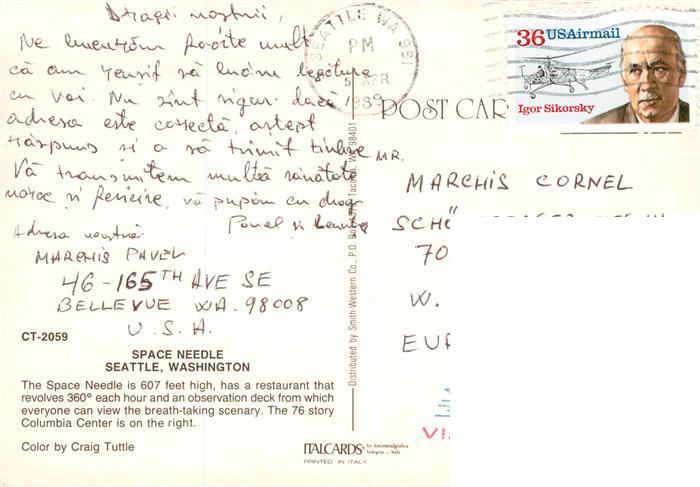 Dragii noștrii,
Ne bucurăm foarte mult
că am reușit să luăm legătura
cu voi. Nu sînt sigur dacă
adresa este corectă, aștept
răspuns și a să trimit
Vă transmitem multă sănătate
noroc și fericire, vă pupăm cu drag
Pavel și
Adresa noastră
MARCHIS PAVEL
46-165TH AVE SE
BELLEVUE WA. 98008
U.S.A.
CT-2059
SPACE NEEDLE
SEATTLE, WASHINGTON
The Space Needle is 607 feet high, has a restaurant that
revolves 360° each hour and an observation deck from which
everyone can view the breath-taking scenary. The 76 story
Columbia Center is on the right.
Color by Craig Tuttle
ITALCARDS by fotometalgrafica
bologna - Italy
PRINTED IN ITALY
Distributed by Smith-Western Co., P.O. Tacoma, WA 98401
SEATTLE WA 981
PM
5 APR
1989
36 USAirmail
Igor Sikorsky
POST CAR
MR.
MARCHIS CORNEL
SCHÖ
70
W.
EUR
VI